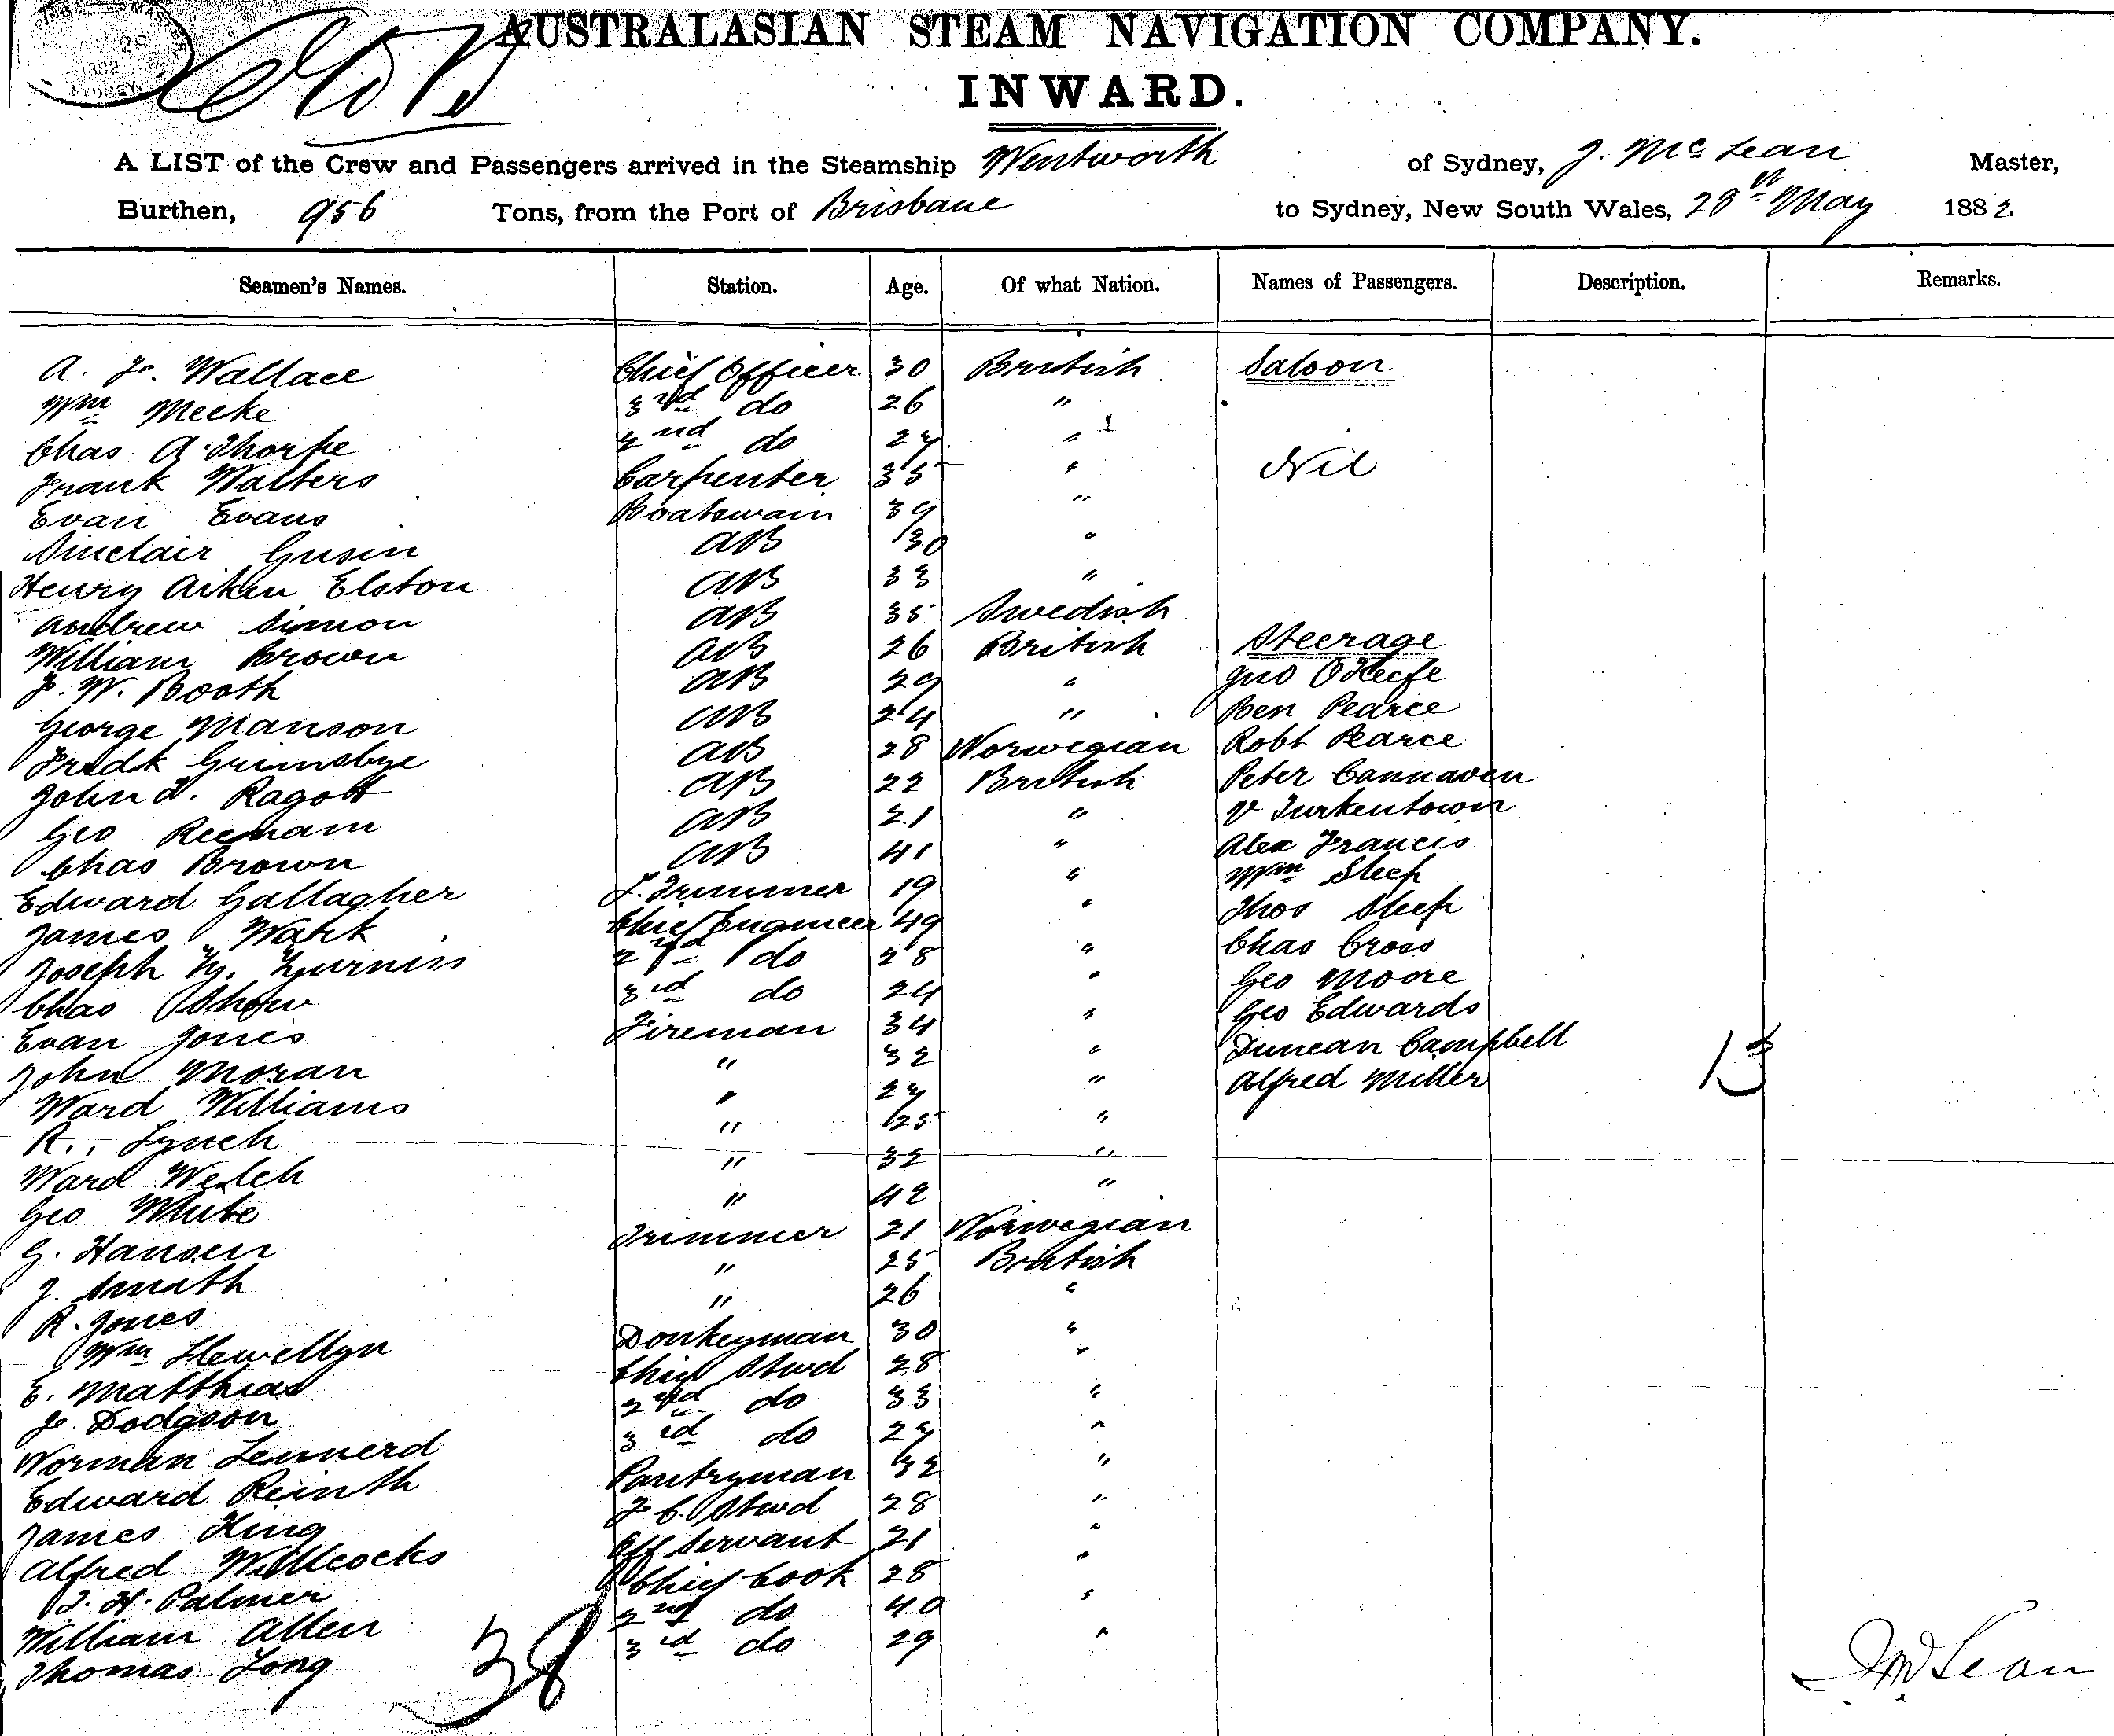 AUSTRALASIAN STEAM NAVIGATION COMPANY.
INWARD.
A LIST of the Crew and Passengers arrived in the Steamship Wentworth of Sydney, J. McLean Master,
Burthen, 956 Tons, from the Port of Brisbane to Sydney, New South Wales, 28th May 1882.
Seamen's Names. Station. Age. Of what Nation. Names of Passengers. Description. Remarks.
A. J. Wallace Chief Officer 30 British Saloon
Wm Mecke 3rd do 26 "
Chas A. Thorpe 2nd do 27 "
Frank Walters Carpenter 35 " Nil
Evan Evans Boatswain 39 "
Sinclair Gusin AB 30 "
Henry Aiken Elston AB 33 "
Andrew Simon AB 35 Swedish
William Brown AB 26 British Steerage
J. W. Booth AB 29 " Jno O'Keefe
George Manson AB 24 " Ben Pearce
Fredk Grimsbye AB 28 Norwegian Robt Pearce
John d. Ragott AB 22 British Peter Cannaven
Geo AB 21 " V Turkentown
Chas Brown AB 41 " Alex Francis
Edward Gallagher L. Trimmer 19 " Wm Sleep
James Wark Chief Engineer 49 " Thos Sleep
Joseph Hy. Furniss 2nd do 28 " Chas Cross
Chas Show 3rd do 24 " Geo Moore
Evan Jones Fireman 34 " Geo Edwards
John Moran " 32 " Duncan Campbell
Ward Williams " 27 " Alfred Miller 13
R. Lynch " 25 "
Ward Welch " 32 "
Geo White " 42 "
G. Hansen Trimmer 21 Norwegian
J. Smith " 25 British
R. Jones " 26 "
Wm Llewellyn Donkeyman 30 "
E. Matthias Chief Stwd 28 "
J. Dodgson 2nd do 33 "
Norman Lennerd 3rd do 27 "
Edward Reinth Pantryman 32 "
James King F C. Stwd 28 "
Alfred Willcocks Off Servant 21 "
J. H. Palmer Chief Cook 28 "
William Allen 2nd do 40 "
Thomas Long 3rd do 29 "
38
J McLean